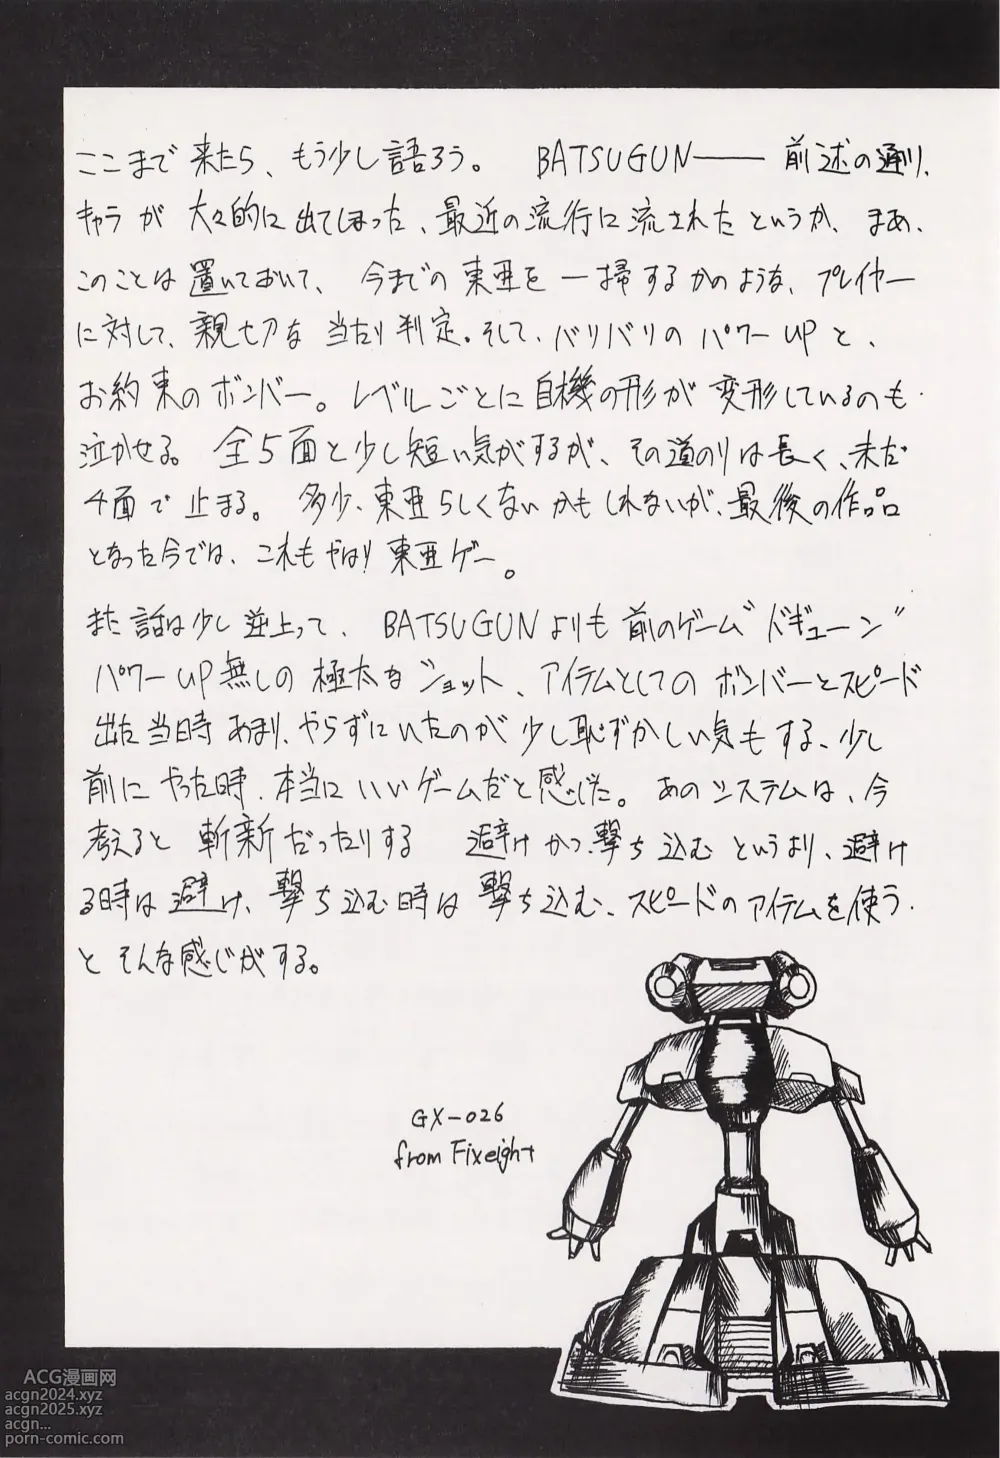 ここまで来たら、もう少し語ろう。 BATSUGUN―― 前述の通り、
キャラが 大々的に出てしまった、最近の流行に流されたというか、まあ、
このことは置いておいて、 今までの東亜を一掃するかのような、プレイヤー
に対して、親切な 当たり判定。そして、バリバリの パワーUPと、
お約束のボンバー。レベルごとに自機の形が 変形しているのも
泣かせる。 全5面と少し短い気がするが、その道のりは長く、未だ
4面で止まる。 多少、東亜らしくないかもしれないが、最後の作品
となった今では、これもやはり東亜ゲー。
また話は少し逆上って、 BATSUGUNよりも前のゲーム"ドギューン"
パワーUP無しの極太なショット、アイテムとしてのボンバーとスピード
出た当時あまり、やらずにいたのが少し恥ずかしい気もする、少し
前にやった時、本当にいいゲームだと感じた。 あのシステムは、今
考えると 斬新だったりする 避けかつ、撃ち込むというより、避け
る時は避け、撃ち込む時は撃ち込む、スピードのアイテムを使う、
とそんな感じがする。
GX-026
from Fixeight
ACG漫画网
acgn2024.xyz
acgn2025.xyz
acgn...
porn-comic.com